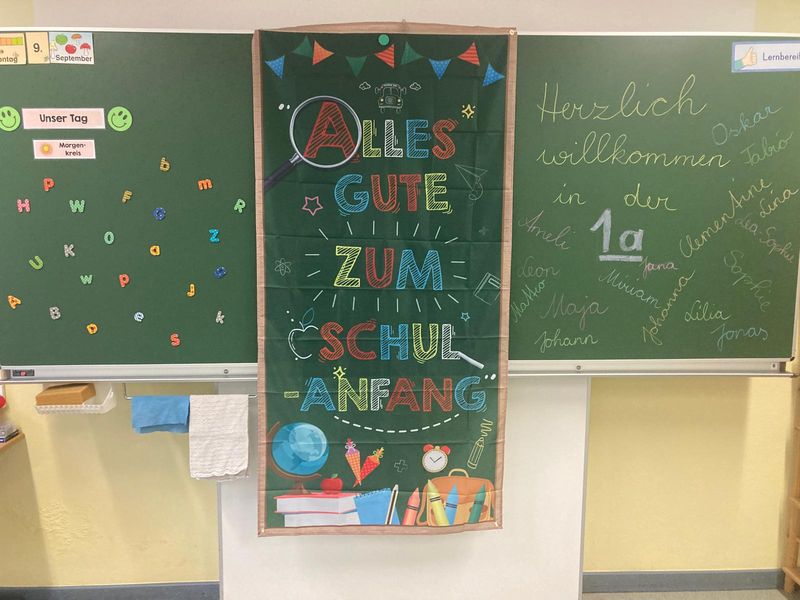 ntag
9.
September
Unser Tag
Morgen-
kreis
b
P
m
H
W
r
R
O
Z
K
a
U
w
P
A
u
b
D
e
J
k
S
ALLES
GUTE
ZUM
SCHUL
-ANFANG
Lernberei
Herzlich
willkommen
in der
1a
Oskar
Fabio
Clementine
Lina
Lea-Sophie
Ameli
Leon
Jana
Matteo
Miriam
Sophie
Maja
Johanna
Lilia
Johann
Jonas